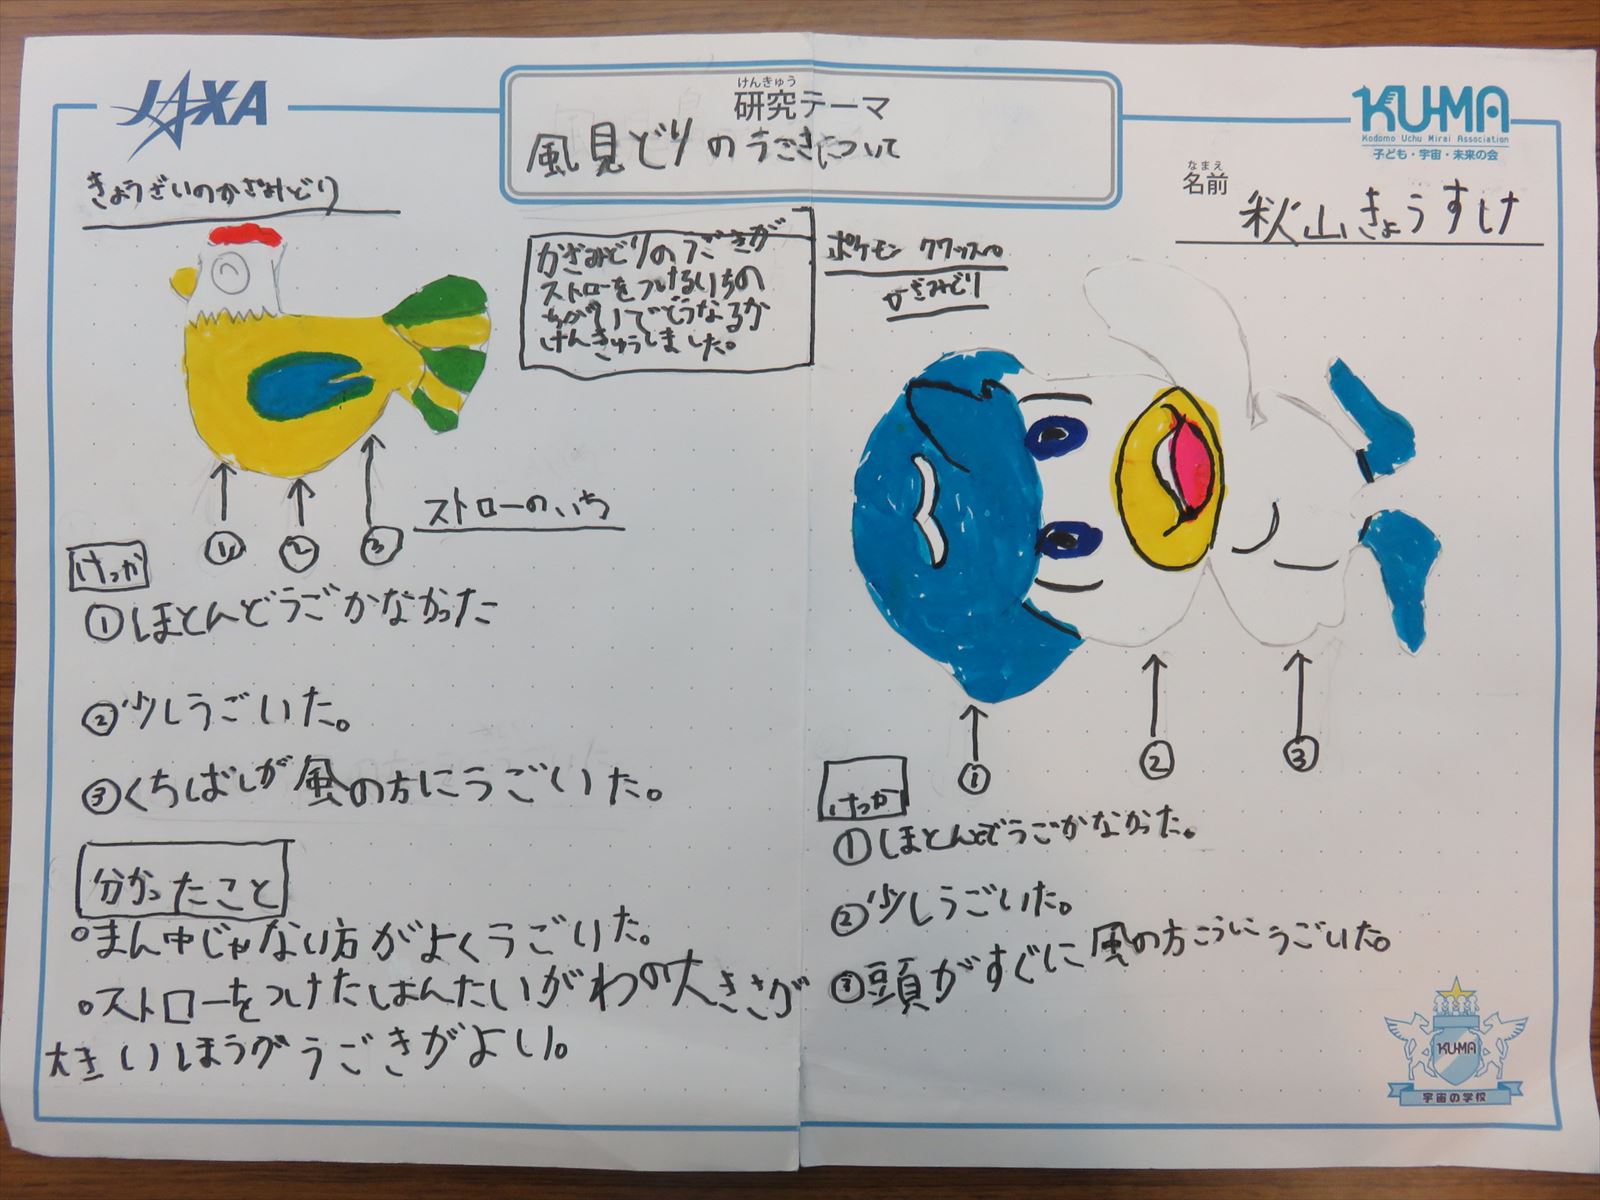 JAXA
けんきゅう
研究テーマ
風見どりのうごきについて
KU-MA
Kodomo Uchu Mirai Association
子ども・宇宙・未来の会
なまえ
名前
秋山きょうすけ
きょうざいのかざみどり
かざみどりのうごきが
ストローをつけるいちの
ちがいでどうなるか
けんきゅうしました。
ポケモン クワッス
かざみどり
① ② ③
ストローのいち
けっか
①ほとんどうごかなかった
②少しうごいた。
③くちばしが風の方にうごいた。
分かったこと
。まん中じゃない方がよくうごいた。
。ストローをつけたはんたいがわの大きさが
大きいほうがうごきがよい。
① ② ③
けっか
①ほとんどうごかなかった。
②少しうごいた。
③頭がすぐに風の方こうにうごいた。
KU-MA
宇宙の学校